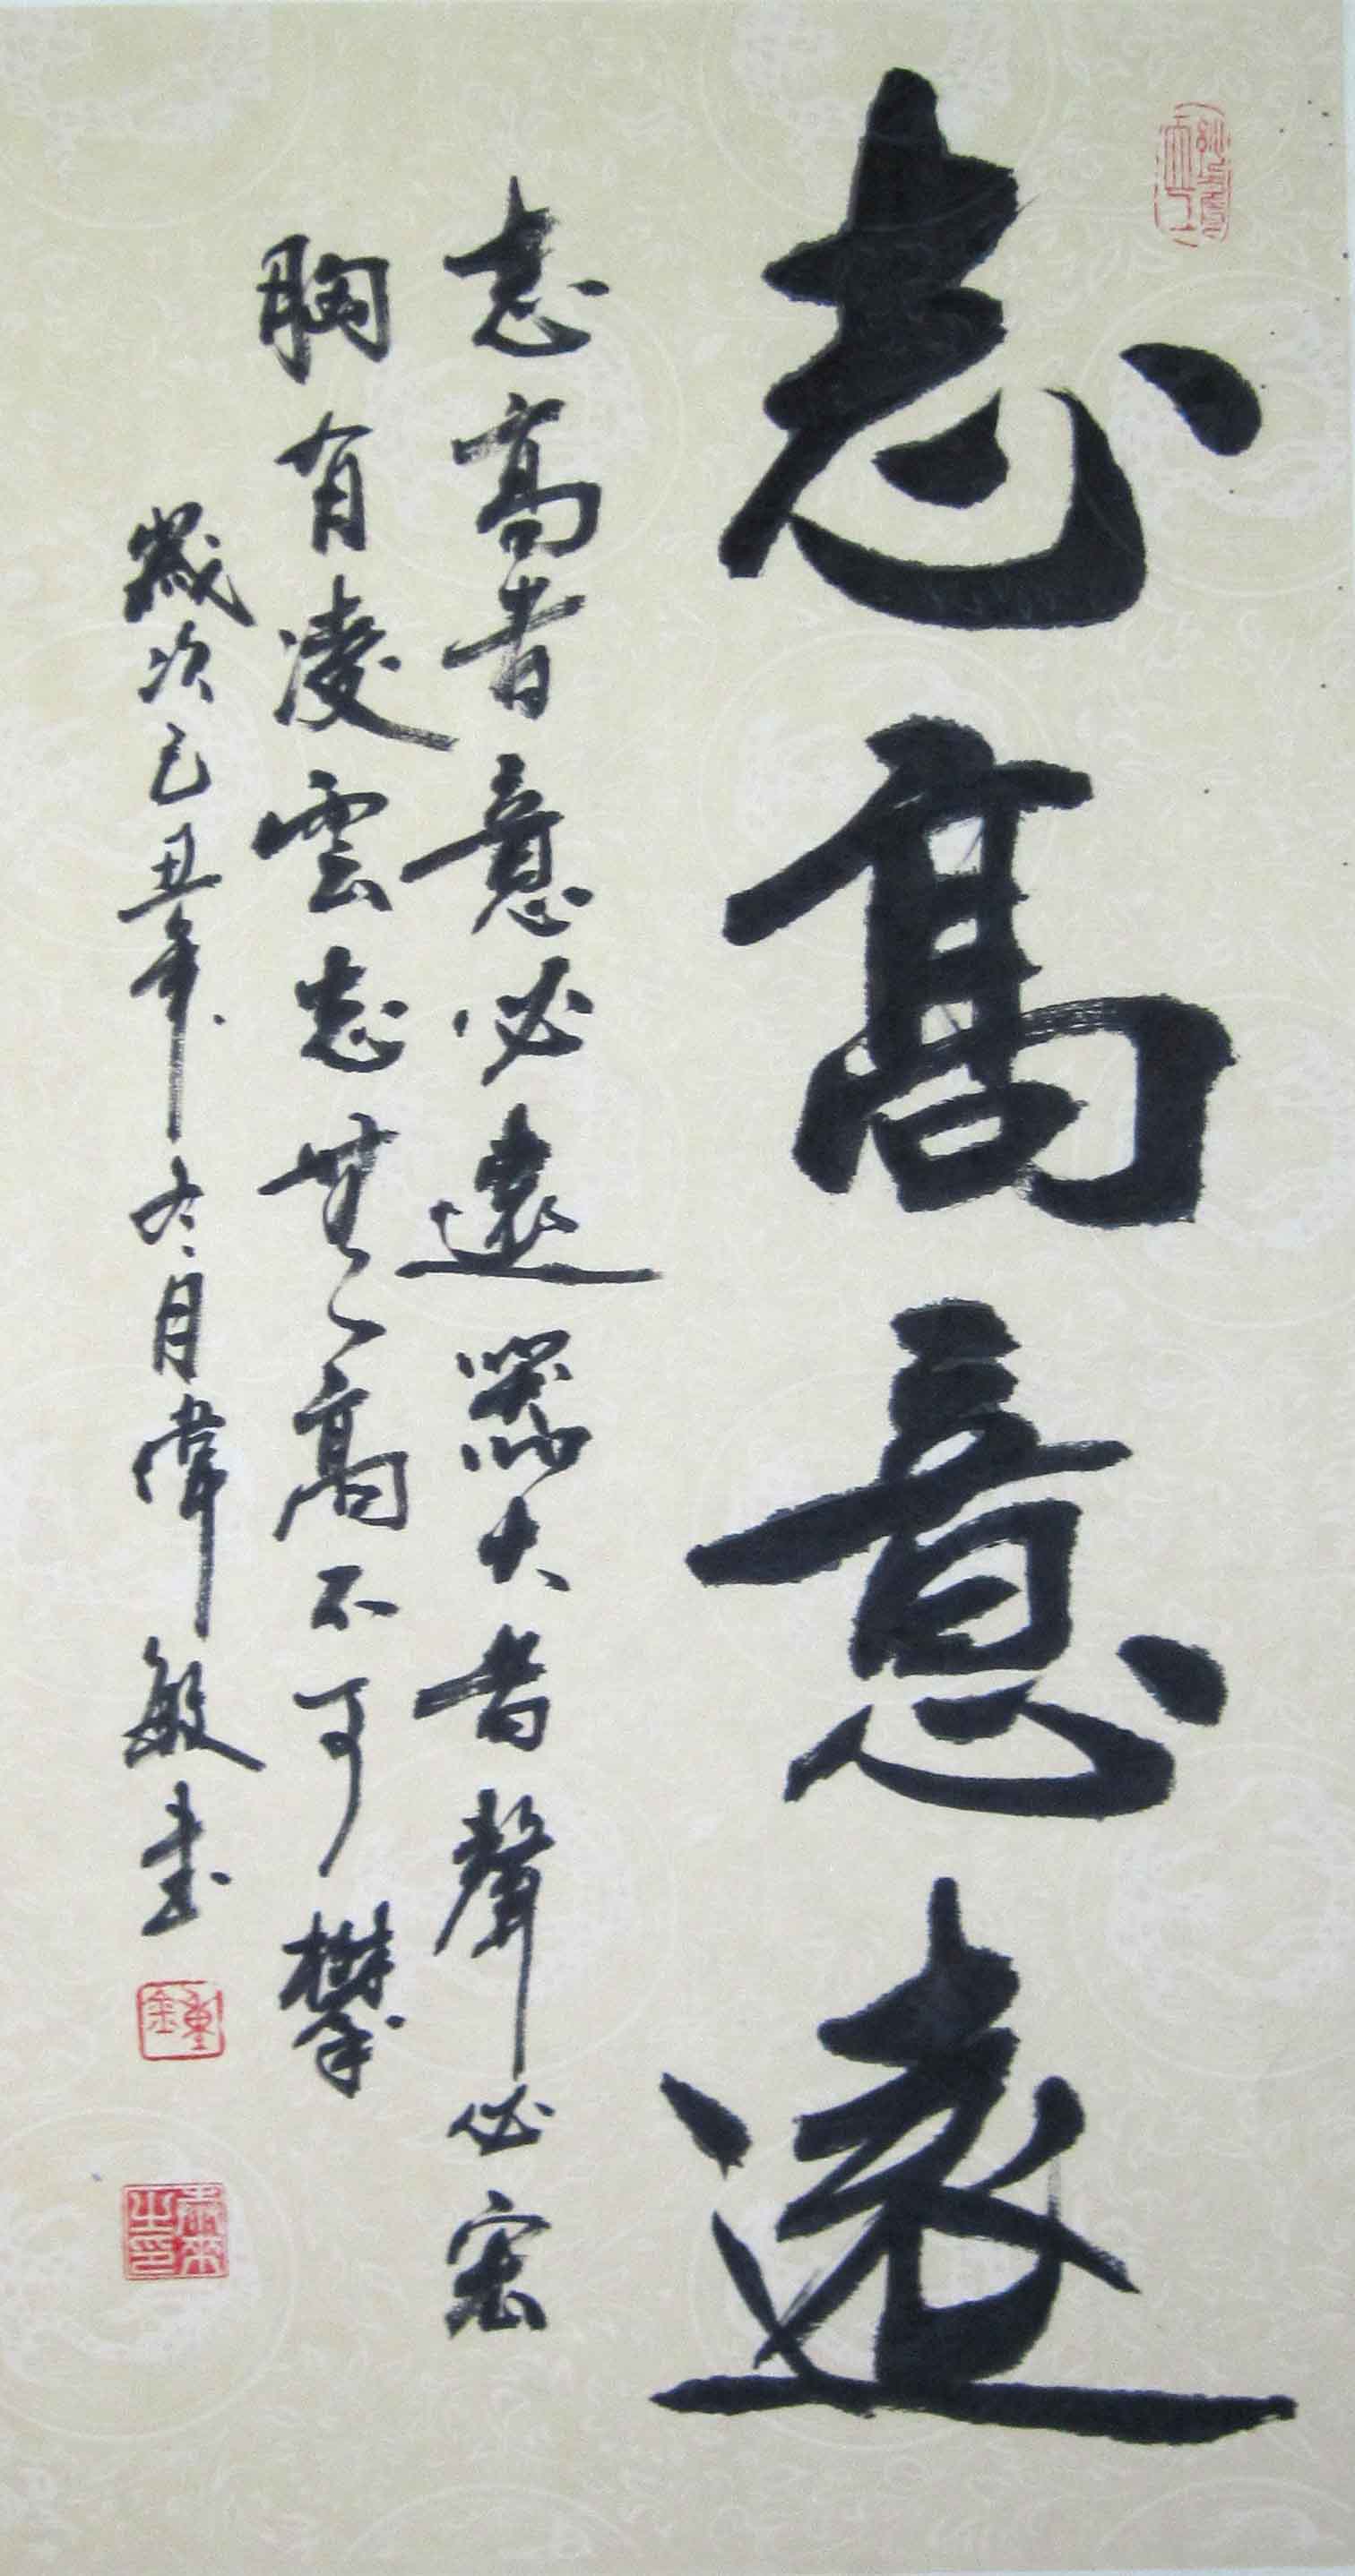 志高意遠
志高者意必遠器大者聲必宏
胸有凌雲志無高不可攀
歲次己丑年冬月偉敏書